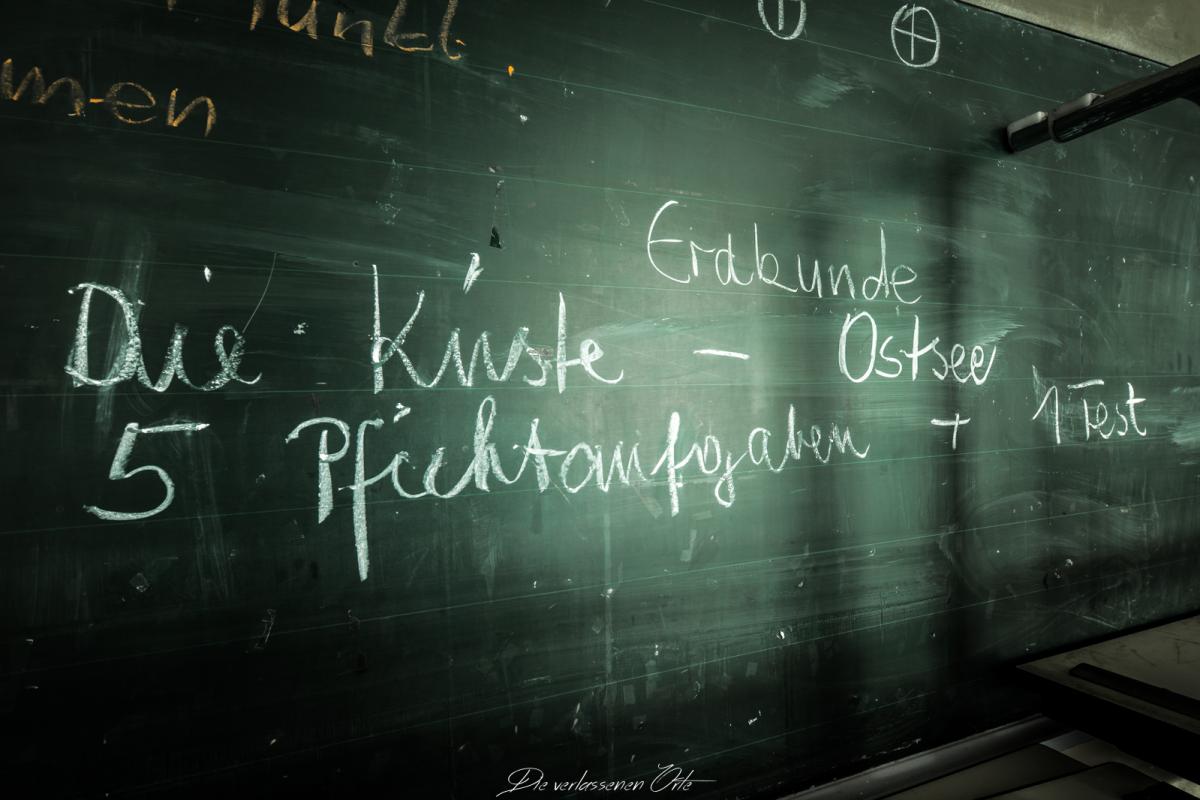 men
Erdkunde
Die Küste - Ostsee
5 Pfichtaufgaben + 1 Test
Die verlassenen Orte